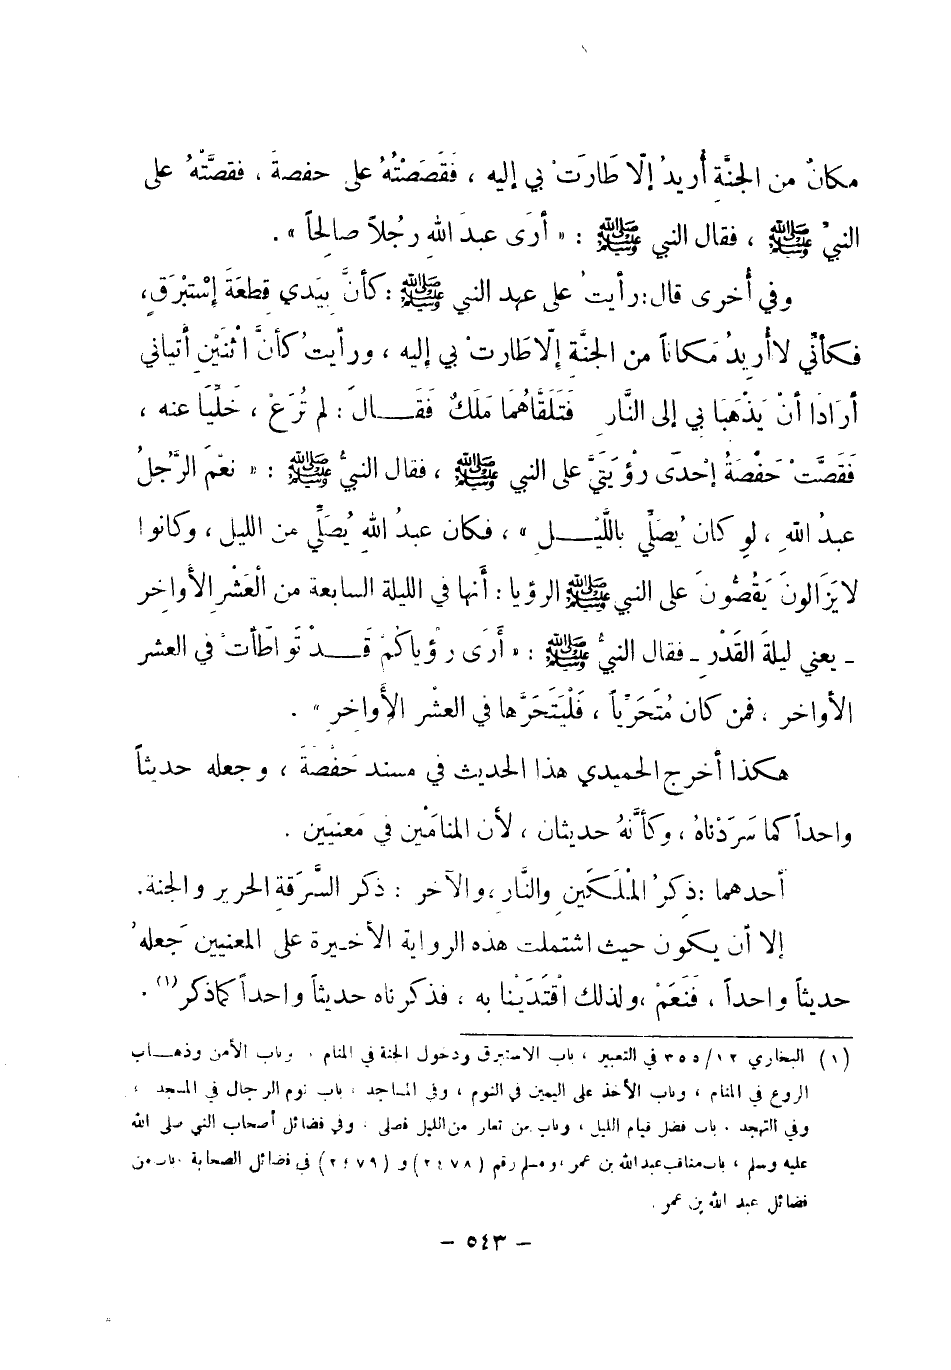 مكانٌ من الجنَّةِ أُريدُ إلّا طَارَتْ بي إليه ، فَقَصَصْتُهُ على حفصةَ ، فقصَّتْهُ على
النبيِّ ﷺ ، فقال النبي ﷺ : « أرَى عبدَ اللهِ رجُلاً صالِحاً » .
وفي أُخرى قال: رأيتُ على عهد النبي ﷺ : كأنَّ بيَدي قِطعَةَ إسْتبْرَقٍ،
فكأنّي لا أُريدُ مَكاناً من الجنَّةِ إلّا طارت بي إليه ، ورأيتُ كأنَّ اثْنَيْنِ أتياني
أرَادَا أنْ يَذْهَبَا بي إلى النَّارِ فَتَلَقَّاهُمَا مَلَكٌ فَقَـــالَ : لم تُرَعْ ، خَلِّيَا عنه ،
فَقَصَّتْ حَفْصَةُ إحْدَى رؤْيَتَيَّ على النبي ﷺ ، فقال النبيُّ ﷺ : « نعْمَ الرَّجُلُ
عبدُ اللهِ ، لو كان يُصَلِّي باللَّيْـــلِ » ، فكان عبدُ اللهِ يُصَلِّي من الليل ، وكانوا
لا يَزَالونَ يَقُصُّونَ على النبي ﷺ الرؤيا : أنها في الليلة السابعة من الْعَشْرِ الأواخرِ
ـ يعني ليلةَ القَدْرِ ـ فقال النبيُّ ﷺ : « أَرَى رؤياكُمْ قَـــدْ تَواطأتْ في العشر
الأواخر ، فمن كان مُتَحَرِّياً ، فَلْيَتَحَرَّها في العشْر الأَواخِرِ » .
هكذا أخرج الحميدي هذا الحديث في مسند حَفْصَةَ ، وجعله حديثاً
واحداً كما سَرَدْناهُ ، وكأنَّهُ حديثان ، لأن المنامَيْن في مَعنيَين .
أحدهما : ذكرُ المْلَكَينِ والنَّار، والآخر : ذكر السَّرَقة الحرير والجنة.
إلا أن يكون حيث اشتملت هذه الرواية الأخيرة على المعنيين جَعله
حديثاً واحداً ، فَنَعَمْ ، ولذلك اقْتَدَيْنا به ، فذكرناه حديثاً واحداً كماذكر(١) .
(١) البخاري ١٢ / ٣٥٥ في التعبير ، باب الاستبرق ودخول الجنة في المنام ، وباب الأمن وذهـــاب
الروع في المنام ، وباب الأخذ على اليمين في النوم ، وفي المساجد ، باب نوم الرجال في المسجد ،
وفي التهجد ، باب فضل قيام الليل ، وباب من تعار من الليل فصلى ، وفي فضائل أصحاب النبي صلى الله
عليه وسلم ، باب مناقب عبد الله بن عمر ، ومسلم رقم (٢٤٧٨) و (٢٤٧٩) في فضائل الصحابة ، باب من
فضائل عبد الله بن عمر .
ـ ٥٤٣ ـ